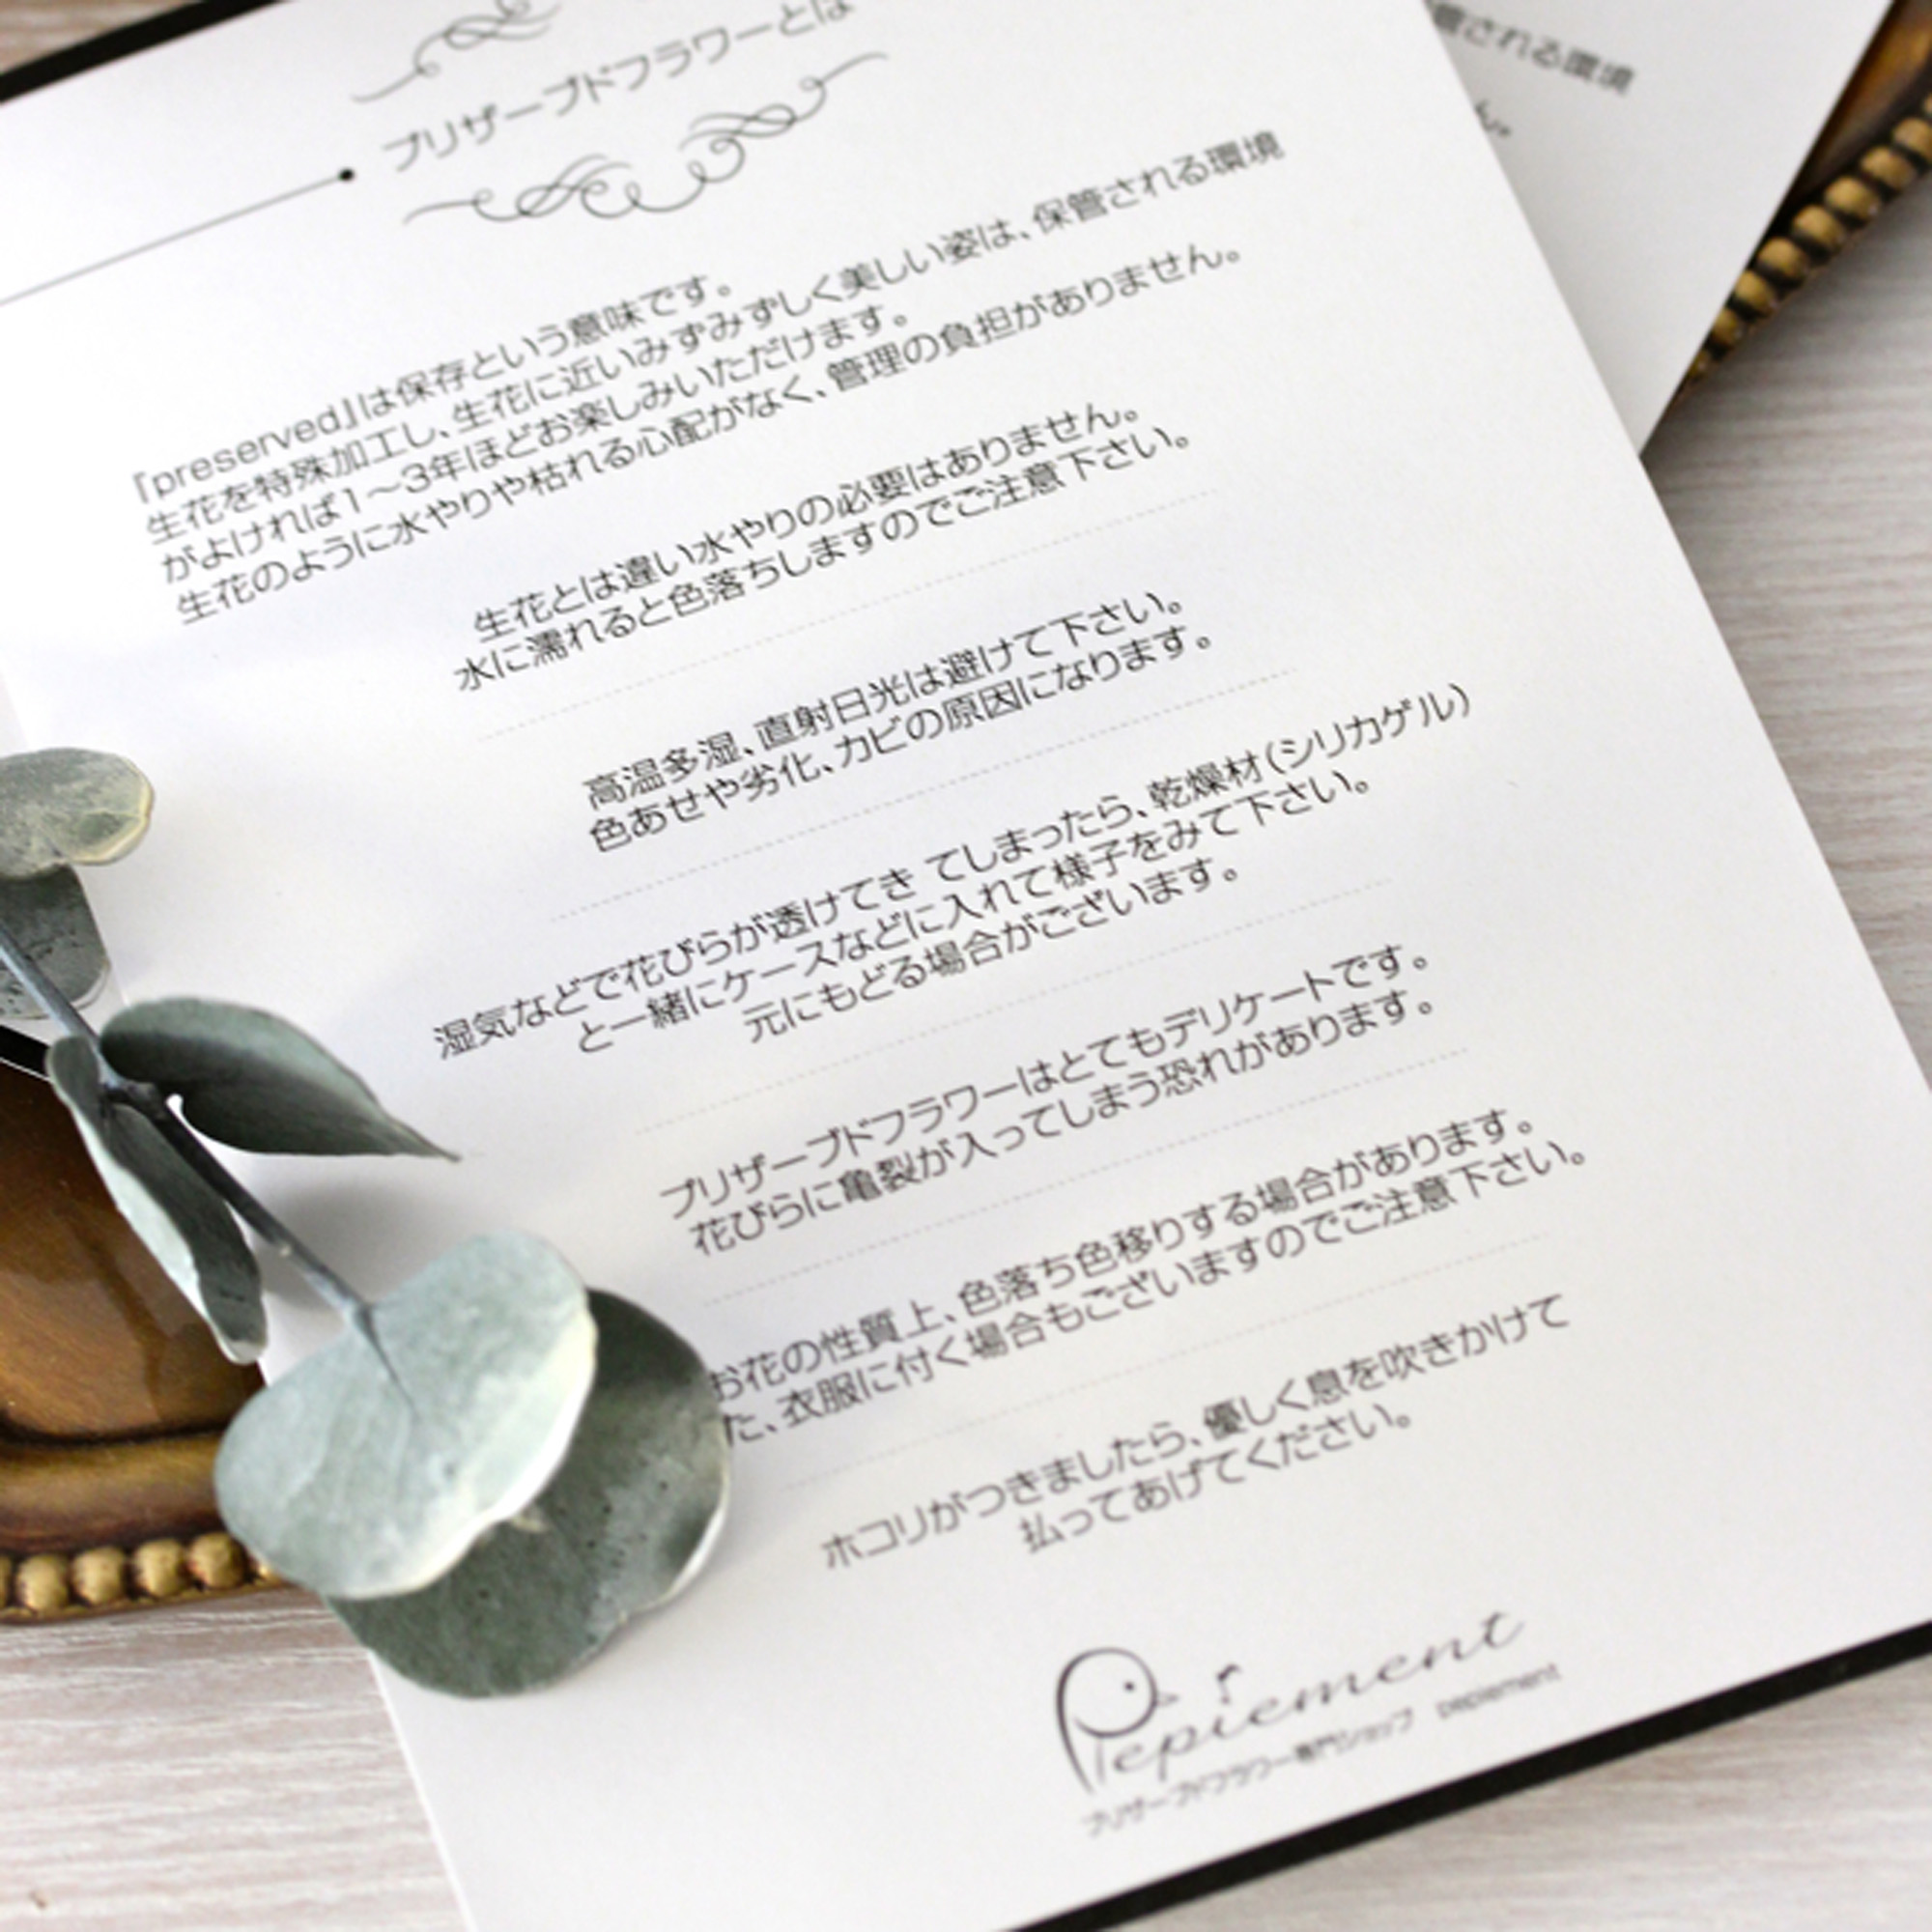 プリザーブドフラワーとは
『preserved』は保存という意味です。
生花を特殊加工し、生花に近いみずみずしく美しい姿は、保管される環境
がよければ1～3年ほどお楽しみいただけます。
生花のように水やりや枯れる心配がなく、管理の負担がありません。
生花とは違い水やりの必要はありません。
水に濡れると色落ちしますのでご注意下さい。
高温多湿、直射日光は避けて下さい。
色あせや劣化、カビの原因になります。
湿気などで花びらが透けてき てしまったら、乾燥材(シリカゲル)
と一緒にケースなどに入れて様子をみて下さい。
元にもどる場合がございます。
プリザーブドフラワーはとてもデリケートです。
花びらに亀裂が入ってしまう恐れがあります。
お花の性質上、色落ち色移りする場合があります。
た、衣服に付く場合もございますのでご注意下さい。
ホコリがつきましたら、優しく息を吹きかけて
払ってあげてください。
Pepiement
プリザーブドフラワー専門ショップ pepiement
される環境
ん。